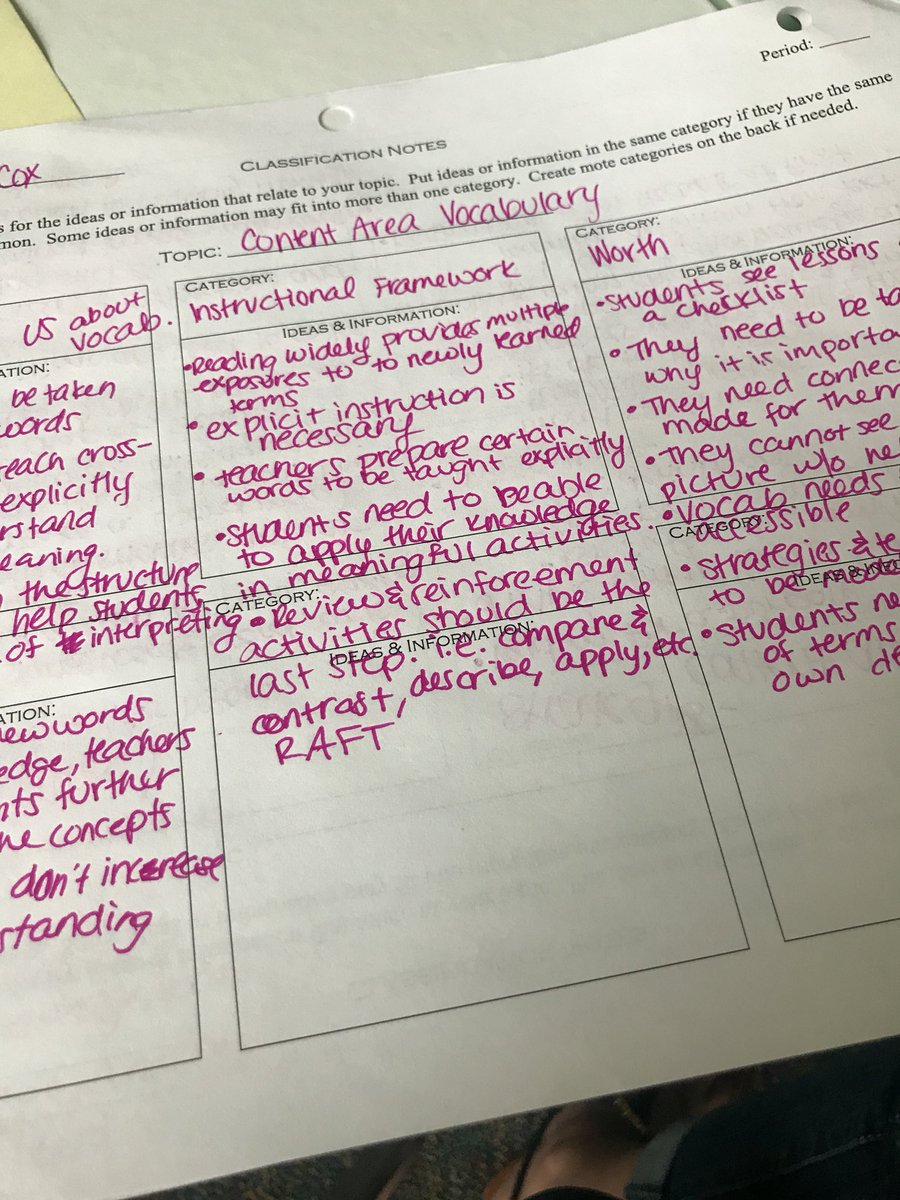 Period:
Cox
CLASSIFICATION NOTES
s for the ideas or information that relate to your topic. Put ideas or information in the same category if they have the same
mon. Some ideas or information may fit into more than one category. Create mote categories on the back if needed.
TOPIC: Content Area Vocabulary
us about
vocab.
ATION:
be taken
words
each cross-
explicitly
rstand
eaning.
the structure
help students
of interpreting
ATION:
new words
edge, teachers
nts further
he concepts
don't increase
standing
CATEGORY:
Instructional Framework
IDEAS & INFORMATION:
•Reading widely provides multiple
exposures to to newly learned
terms
• explicit instruction is
necessary
• teachers prepare certain
words to be taught explicitly
•students need to be able
to apply their knowledge
in meaningful activities.
CATEGORY:
• Review & reinforcement
activities should be the
IDEAS & INFORMATION:
last step. i.e. compare &
contrast, describe, apply, etc.
RAFT
CATEGORY:
Worth
IDEAS & INFORMATION:
•students see lessons
a checklist
• They need to be to
why it is importa
• They need connec
made for them
• They cannot see
picture w/o ne
• vocab needs
CATEGORY:
accessible
• strategies & te
IDEAS & INFO
to be
• students ne
of terms
own de